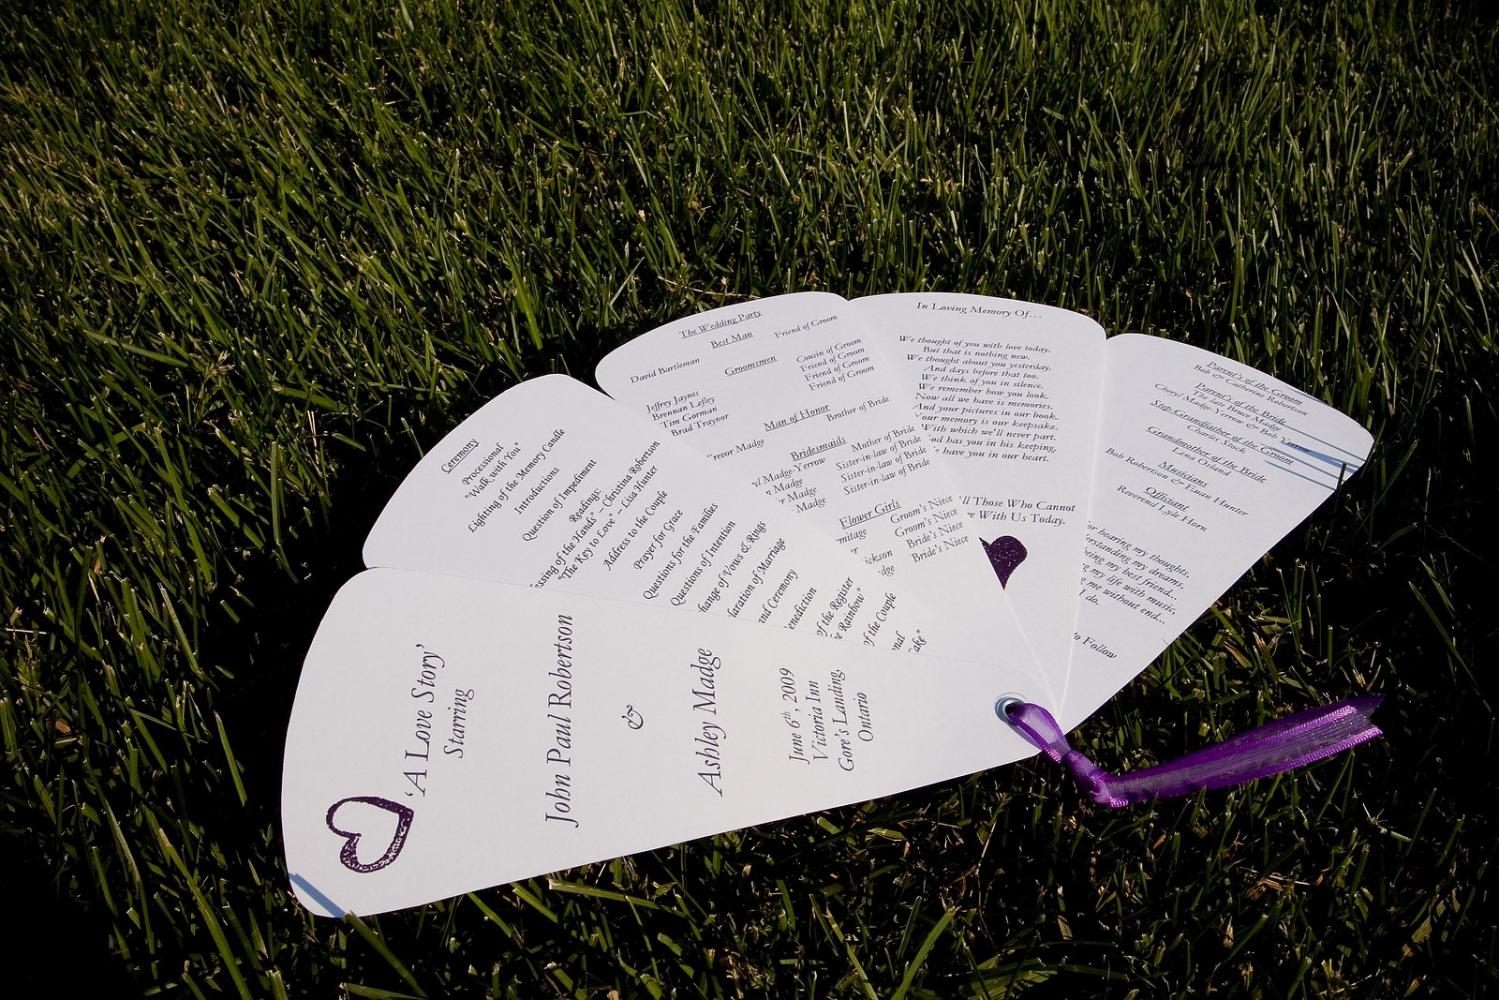 'A Love Story'
Starring
John Paul Robertson
&
Ashley Madge
June 6th, 2009
Victoria Inn
Gore's Landing
Ontario
Ceremony
Processional
"Walk with You"
Lighting of the Memory Candle
Introductions
Question of Impediment
Readings:
ssing of the Hands" – Christina Robertson
"The Key to Love" – Lisa Hunter
Address to the Couple
Prayer for Grace
Questions for the Families
Questions of Intention
hange of Vows & Rings
laration of Marriage
and Ceremony
enediction
of the Register
e Rainbow"
f the Couple
nal
ake"
The Wedding Party
Best Man
David Bartleman Friend of Groom
Groomsmen
Jeffrey Jaynes Cousin of Groom
Brennan Lefley Friend of Groom
Tim Gorman Friend of Groom
Brad Traynor Friend of Groom
Man of Honor
revor Madge Brother of Bride
Bridesmaids
yl Madge-Yerrow Mother of Bride
n Madge Sister-in-law of Bride
r Madge Sister-in-law of Bride
Madge Sister-in-law of Bride
Flower Girls
rmitage Groom's Niece
er Groom's Niece
ickson Bride's Niece
dge Bride's Niece
In Loving Memory Of…
We thought of you with love today.
But that is nothing new.
We thought about you yesterday.
And days before that too.
We think of you in silence.
We remember how you look.
Now all we have is memories.
And your pictures in our book.
Your memory is our keepsake.
With which we'll never part.
God has you in his keeping,
e have you in our heart.
'll Those Who Cannot
e With Us Today.
Parent's of the Groom
Bob & Catherine Robertson
Parent's of the Bride
The late Bruce Madge
Cheryl Madge-Yerrow & Bob Yerrow
Step Grandfather of the Groom
Charles Stock
Grandmother of the Bride
Lena Orland
Musicians
Bob Robertson & Euan Hunter
Officiant
Reverend Lyle Horn
or hearing my thoughts,
erstanding my dreams,
eing my best friend...
g my life with music,
g me without end...
I do.
o Follow